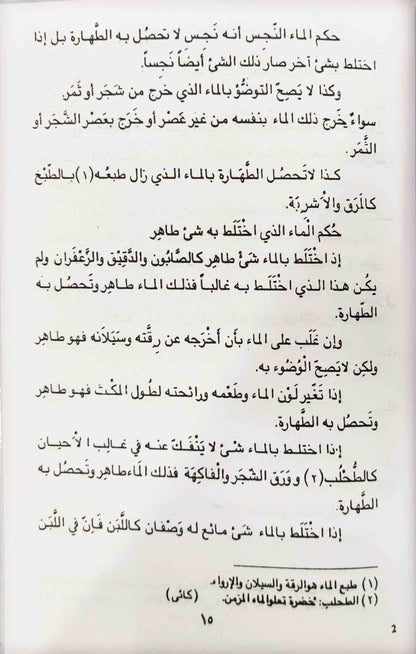 حكم الماء النّجس أنه نَجِس لا تحصُل به الطَّهارة بل إذا
اختلط بشئ آخر صار ذلك الشئ أيضاً نَجِساً.
وكذا لا يَصِحّ التوضُّؤ بالماء الذي خرج من شَجَر أو ثَمَر.
سواءٌ خَرج ذلك الماء بنفسه من غير عَصْر أو خَرَج بعَصْر الشَّجَر أو
الثَّمَر.
كـذا لاتَحصُل الطَّهَارة بالماء الـذي زال طبعُه (١) بـالطَّبْخ
كالمَرَق والأشرِبَة.
حُكم الْماء الذي اخْتَلَط به شئ طاهِر
إذ اخْتَلَط بالماء شَئٌ طاهِر كالصَّابُون والدَّقِيْق والزَّعْفَران ولم
يكُن هذا الـذي اخْتلَط به غالبـاً فذلـك المـاء طـاهِر وتَحصُل به
الطَّهارة.
وإن غَلَب على الماء بأن أخْرَجه عن رِقَّته وسَيَلانه فهو طاهِر
ولكِن لايَصِحّ الْوُضُوء به.
إذا تَغَيّر لَوْن الماء وطَعْمه ورائحته لطُول المكْث فهو طاهِر
وتَحصُل به الطَّهارة.
إذا اختلـط بالمـاء شَـئٌ لا يَنْفـكّ عنـه في غـالِب الأحيان
كالطُّحْلُب (٢) و وَرَق الشّجَر والْفاكِهَة فذلك الماءطاهِر وتَحصُل به
الطَّهارة.
إذا اخْتَلَط بالماء شَئٌ مائع له وَصْفان كاللَّبَن فَإنّ في اللَّبَن
(١) طبع الماء هوالرقة والسيلان والإرواء.
(٢) الطحلب: خضرة تعلوالماء المزمن.
١٥
2